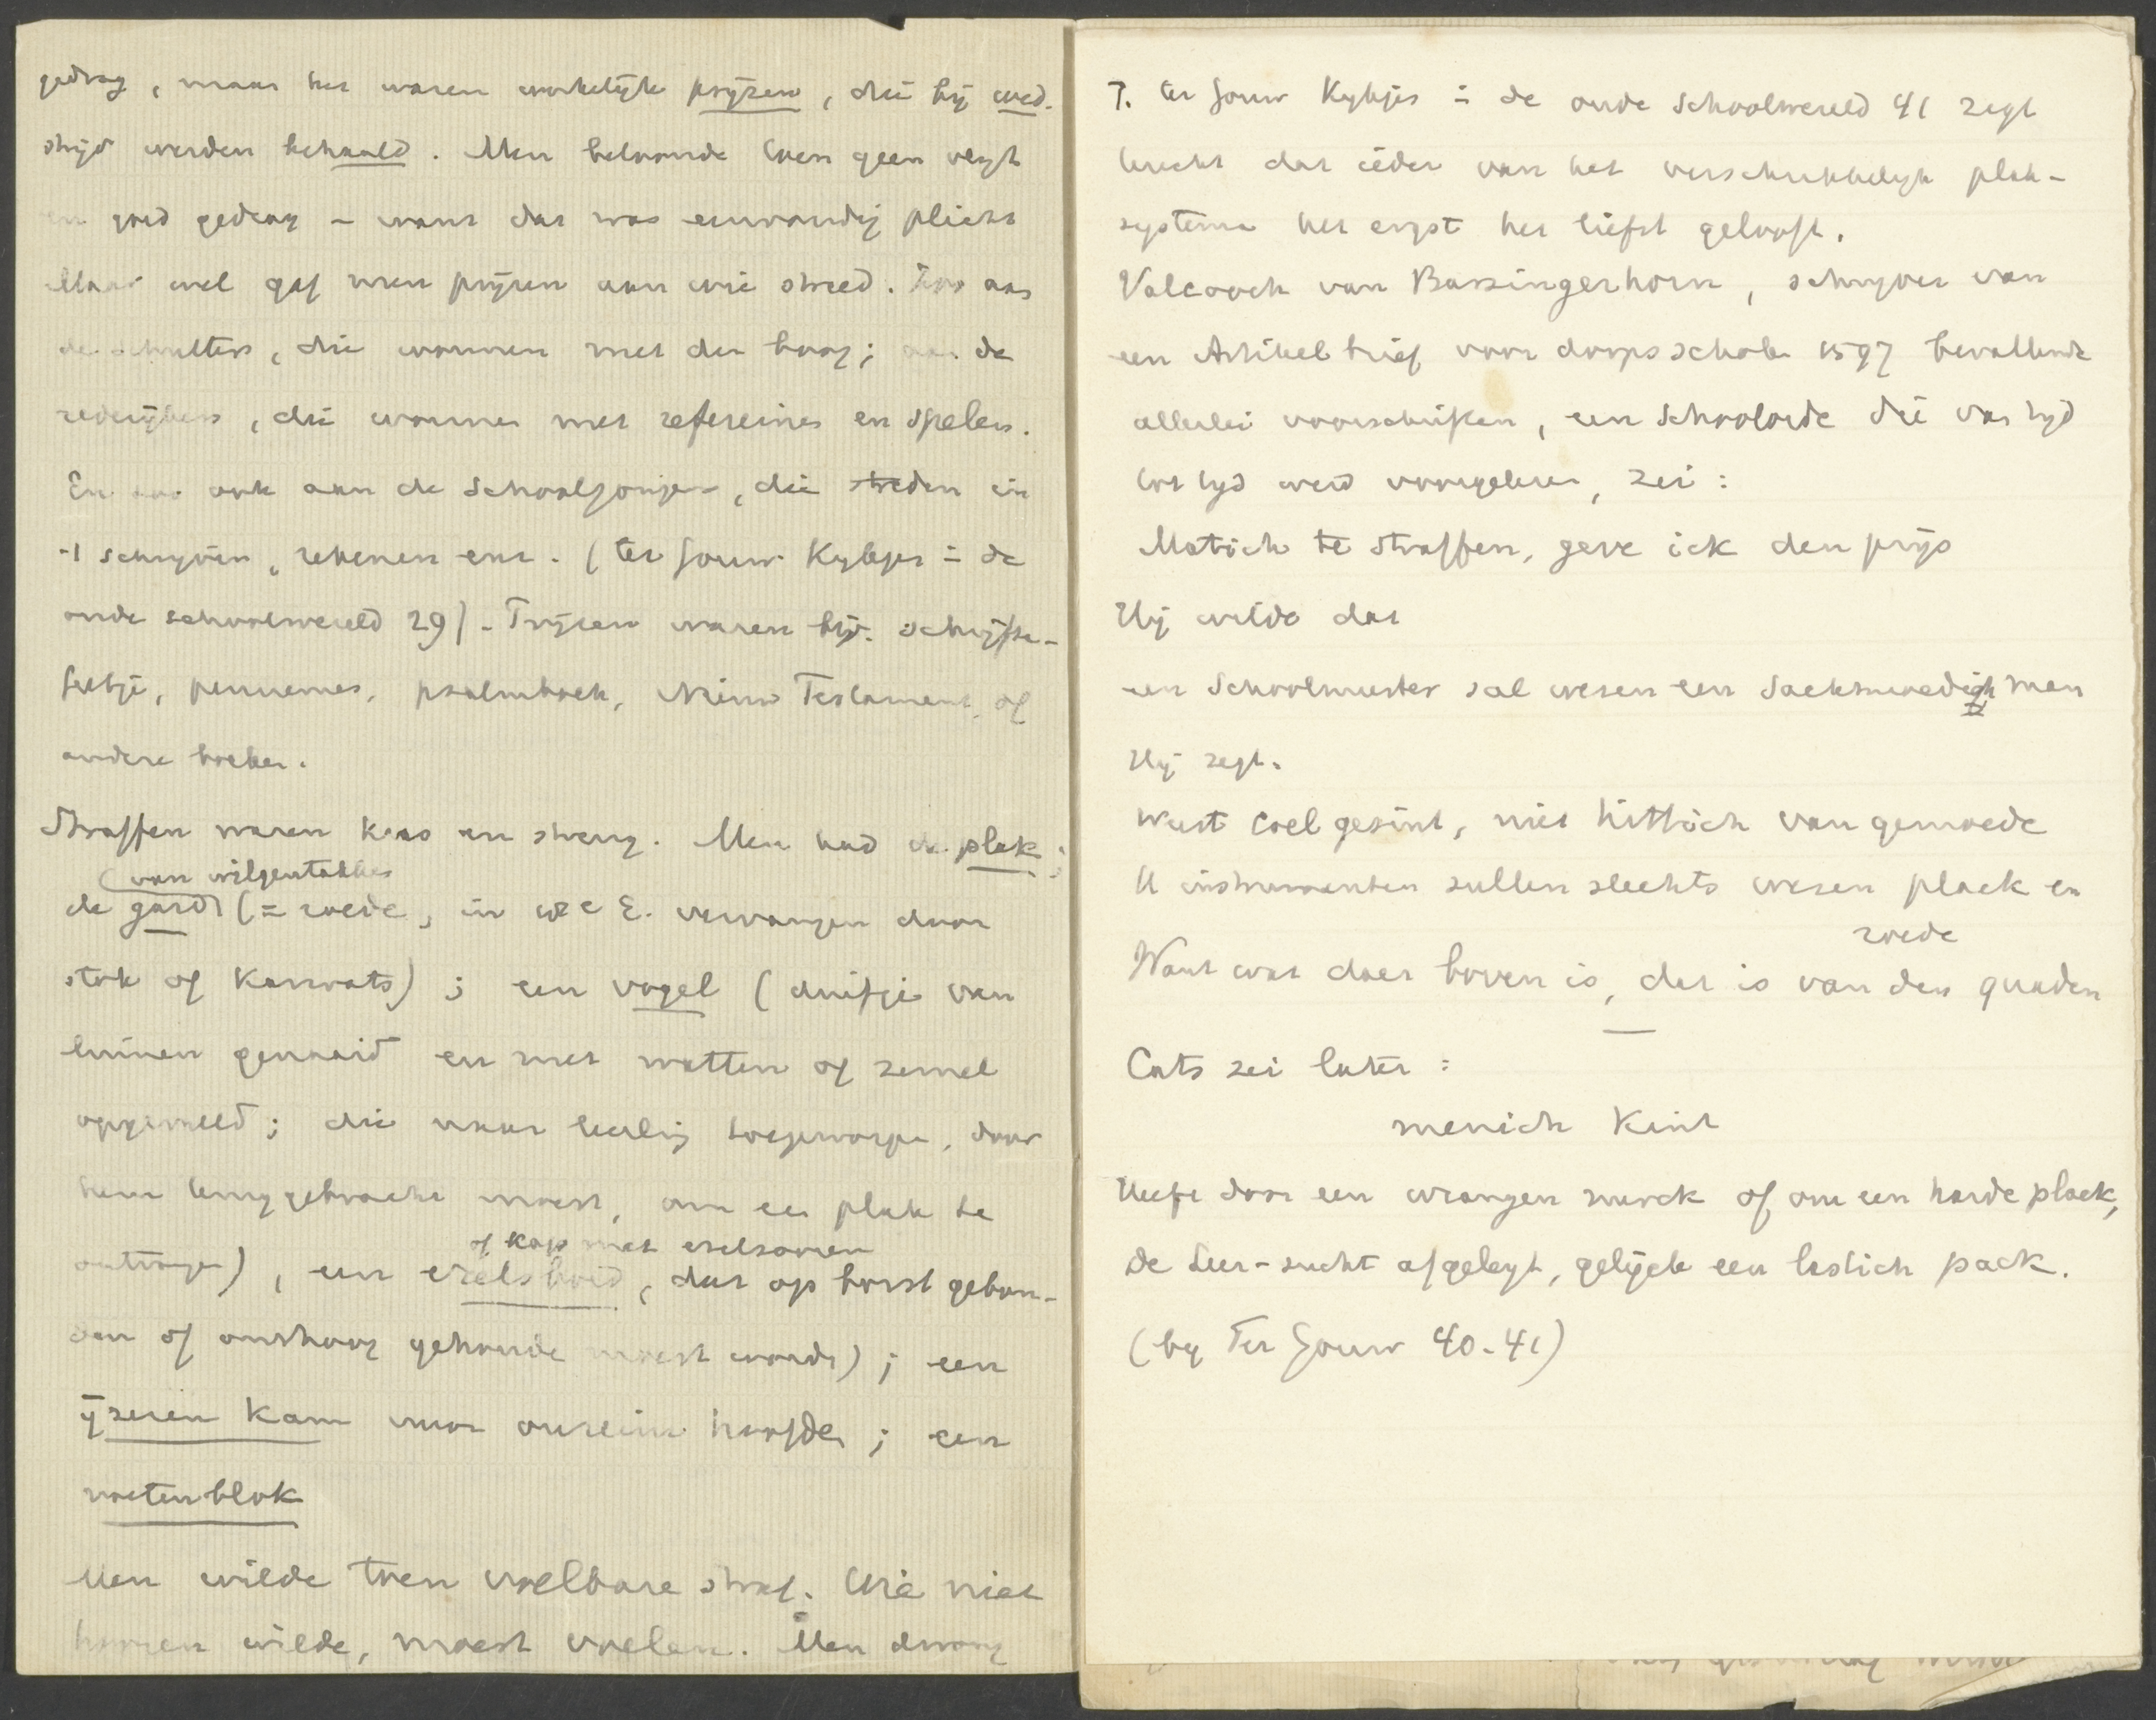 gedrag, maar het waren werkelijke prijzen, die bij wed-
strijd werden behaald. Men beloonde toen geen vlijt
en goed gedrag – want dat was eenvoudig plicht
Maar wel gaf men prijzen aan wie streed. Zoo aan
de schutters, die wonnen met den boog; aan de
rederijkers, die wonnen met refereinen en spelen.
En zoo ook aan de schooljongens, die streden in
't schrijven, rekenen enz. (ter Gouw Kijkjes in de
oude schoolwereld 29). Prijzen waren bijv. schrijfta-
feltje, pennemes, psalmboek, Nieuw Testament, of
andere boeken.
Straffen waren kras en streng. Men had de plak;
(van wilgentakken
de garde (= roede, in W.E. vervangen door
stok of karwats); een vogel (duifje van
linnen genaaid en met watten of zemel
opgevuld; die naar leerling toegeworpen, door
hem teruggebracht moest, om een plak te
of kap met ezelsooren
ontvangen), een ezelsbord, dat op borst gebon-
den of omhoog gehouden moest worden); een
ijzeren kam voor onreine hoofden; een
voetenblok
Men wilde toen voelbare straf. Wie niet
hooren wilde, moest voelen. Men dwong
J. ter Gouw Kijkjes in de oude schoolwereld 41 zegt
terecht dat ieder van het verschrikkelijk plak-
systeem het ergst het liefst gelooft.
Valcooch van Barsingerhorn, schrijver van
een Artikelbrief voor dorpsscholen 1597 bevattende
allerlei voorschriften, een schoolorde die van tijd
tot tijd werd voorgelezen, zei:
Matich te straffen, geve ick den prijs
Hij wilde dat
een Schoolmeester sal wesen een Sachtmoedigh man
Hij zegt.
Weest coel gesint, niet hittich van gemoede
U instrumenten sullen slechts wesen plack en
roede
Want wat daer boven is, dat is van den quaden
Cats zei later:
menich kint
Heeft door een wrangen nurck of om een harde plack,
De Leer-sucht afgeleyt, gelijck een lastich pack.
(bij Ter Gouw 40-41)